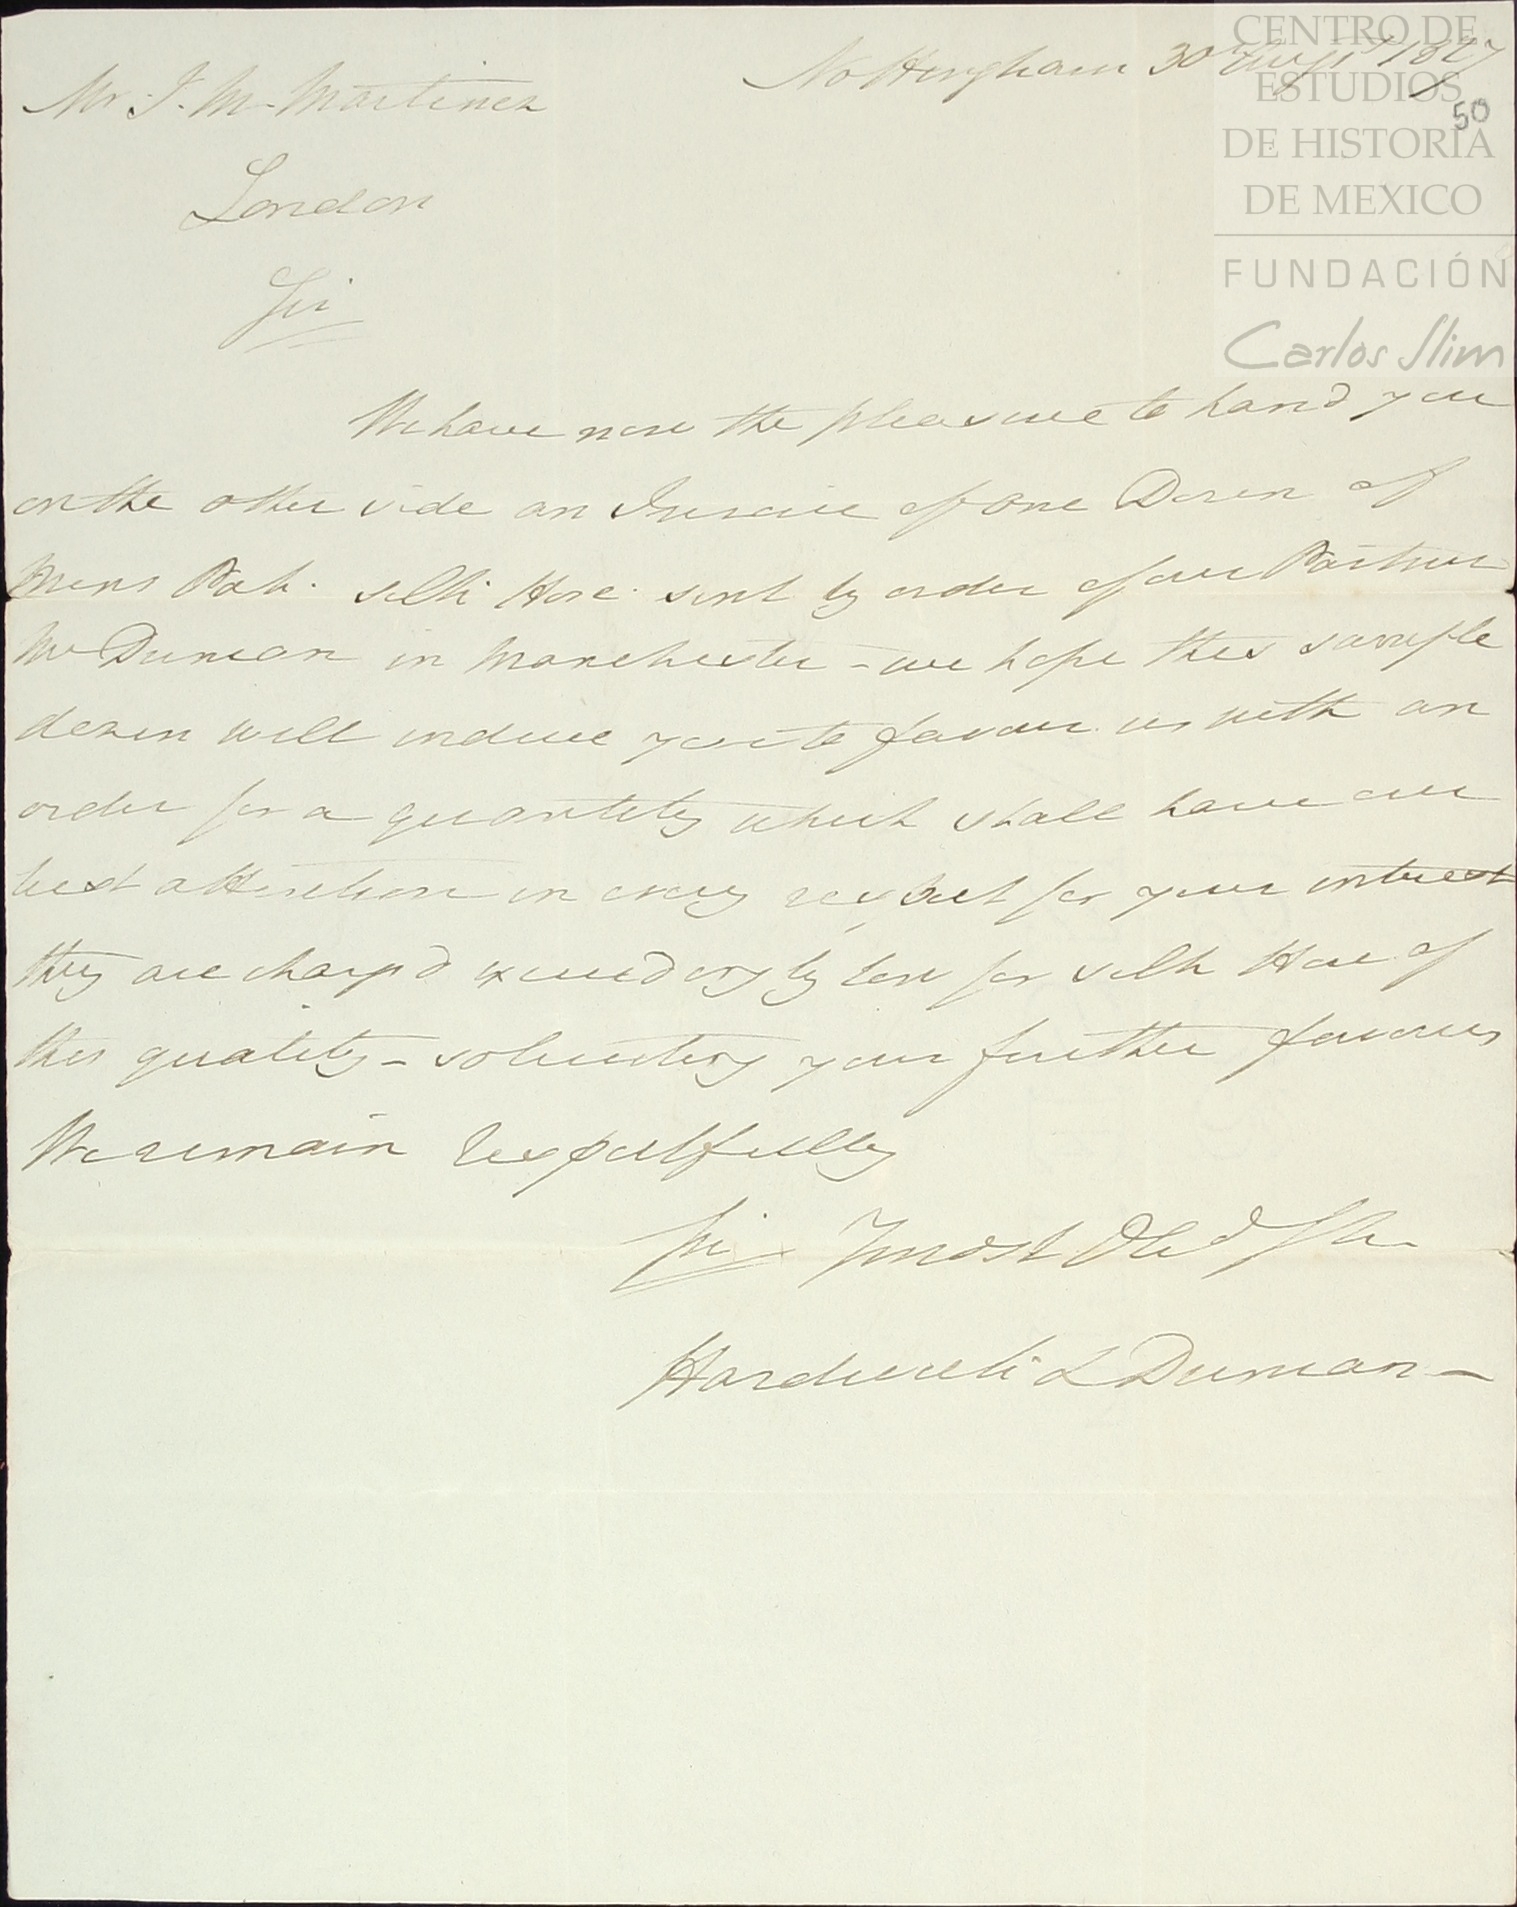 Nottingham 30 Augst 1827
50
Mr J. M. Martinez
London
Sir
We have now the pleasure to hand you
on the other side an Invoice of One Dozen of
Mens Silk Hose sent by order of our Partner
Mr Duncan in Manchester - we hope this sample
dozen will induce you to favour us with an
order for a quantity which shall have our
best attention in every respect for your interest
they are charg'd exceedingly low for silk Hose of
this quality - soliciting your further favours
We remain Respectfully
Sir Yr most Obd St
& Duncan -
CENTRO DE
ESTUDIOS
DE HISTORIA
DE MEXICO
FUNDACIÓN
Carlos Slim